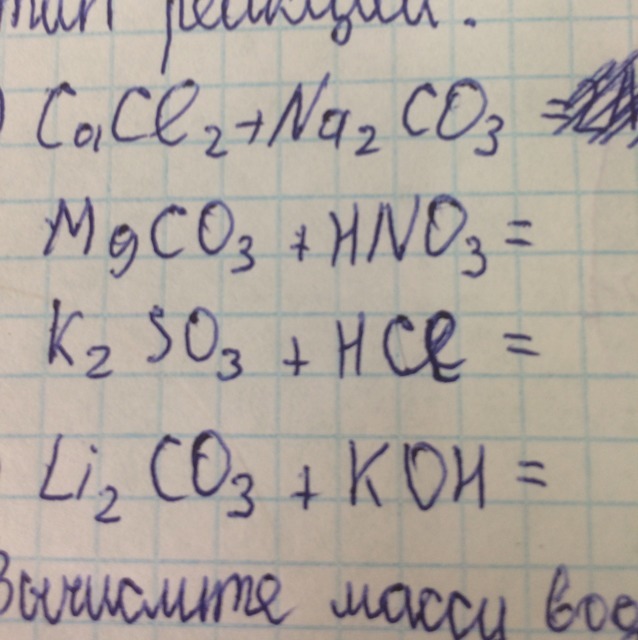 реакции.
) CaCl₂ + Na₂CO₃ =
MgCO₃ + HNO₃ =
K₂SO₃ + HCl =
) Li₂CO₃ + KOH =
Вычислите массу